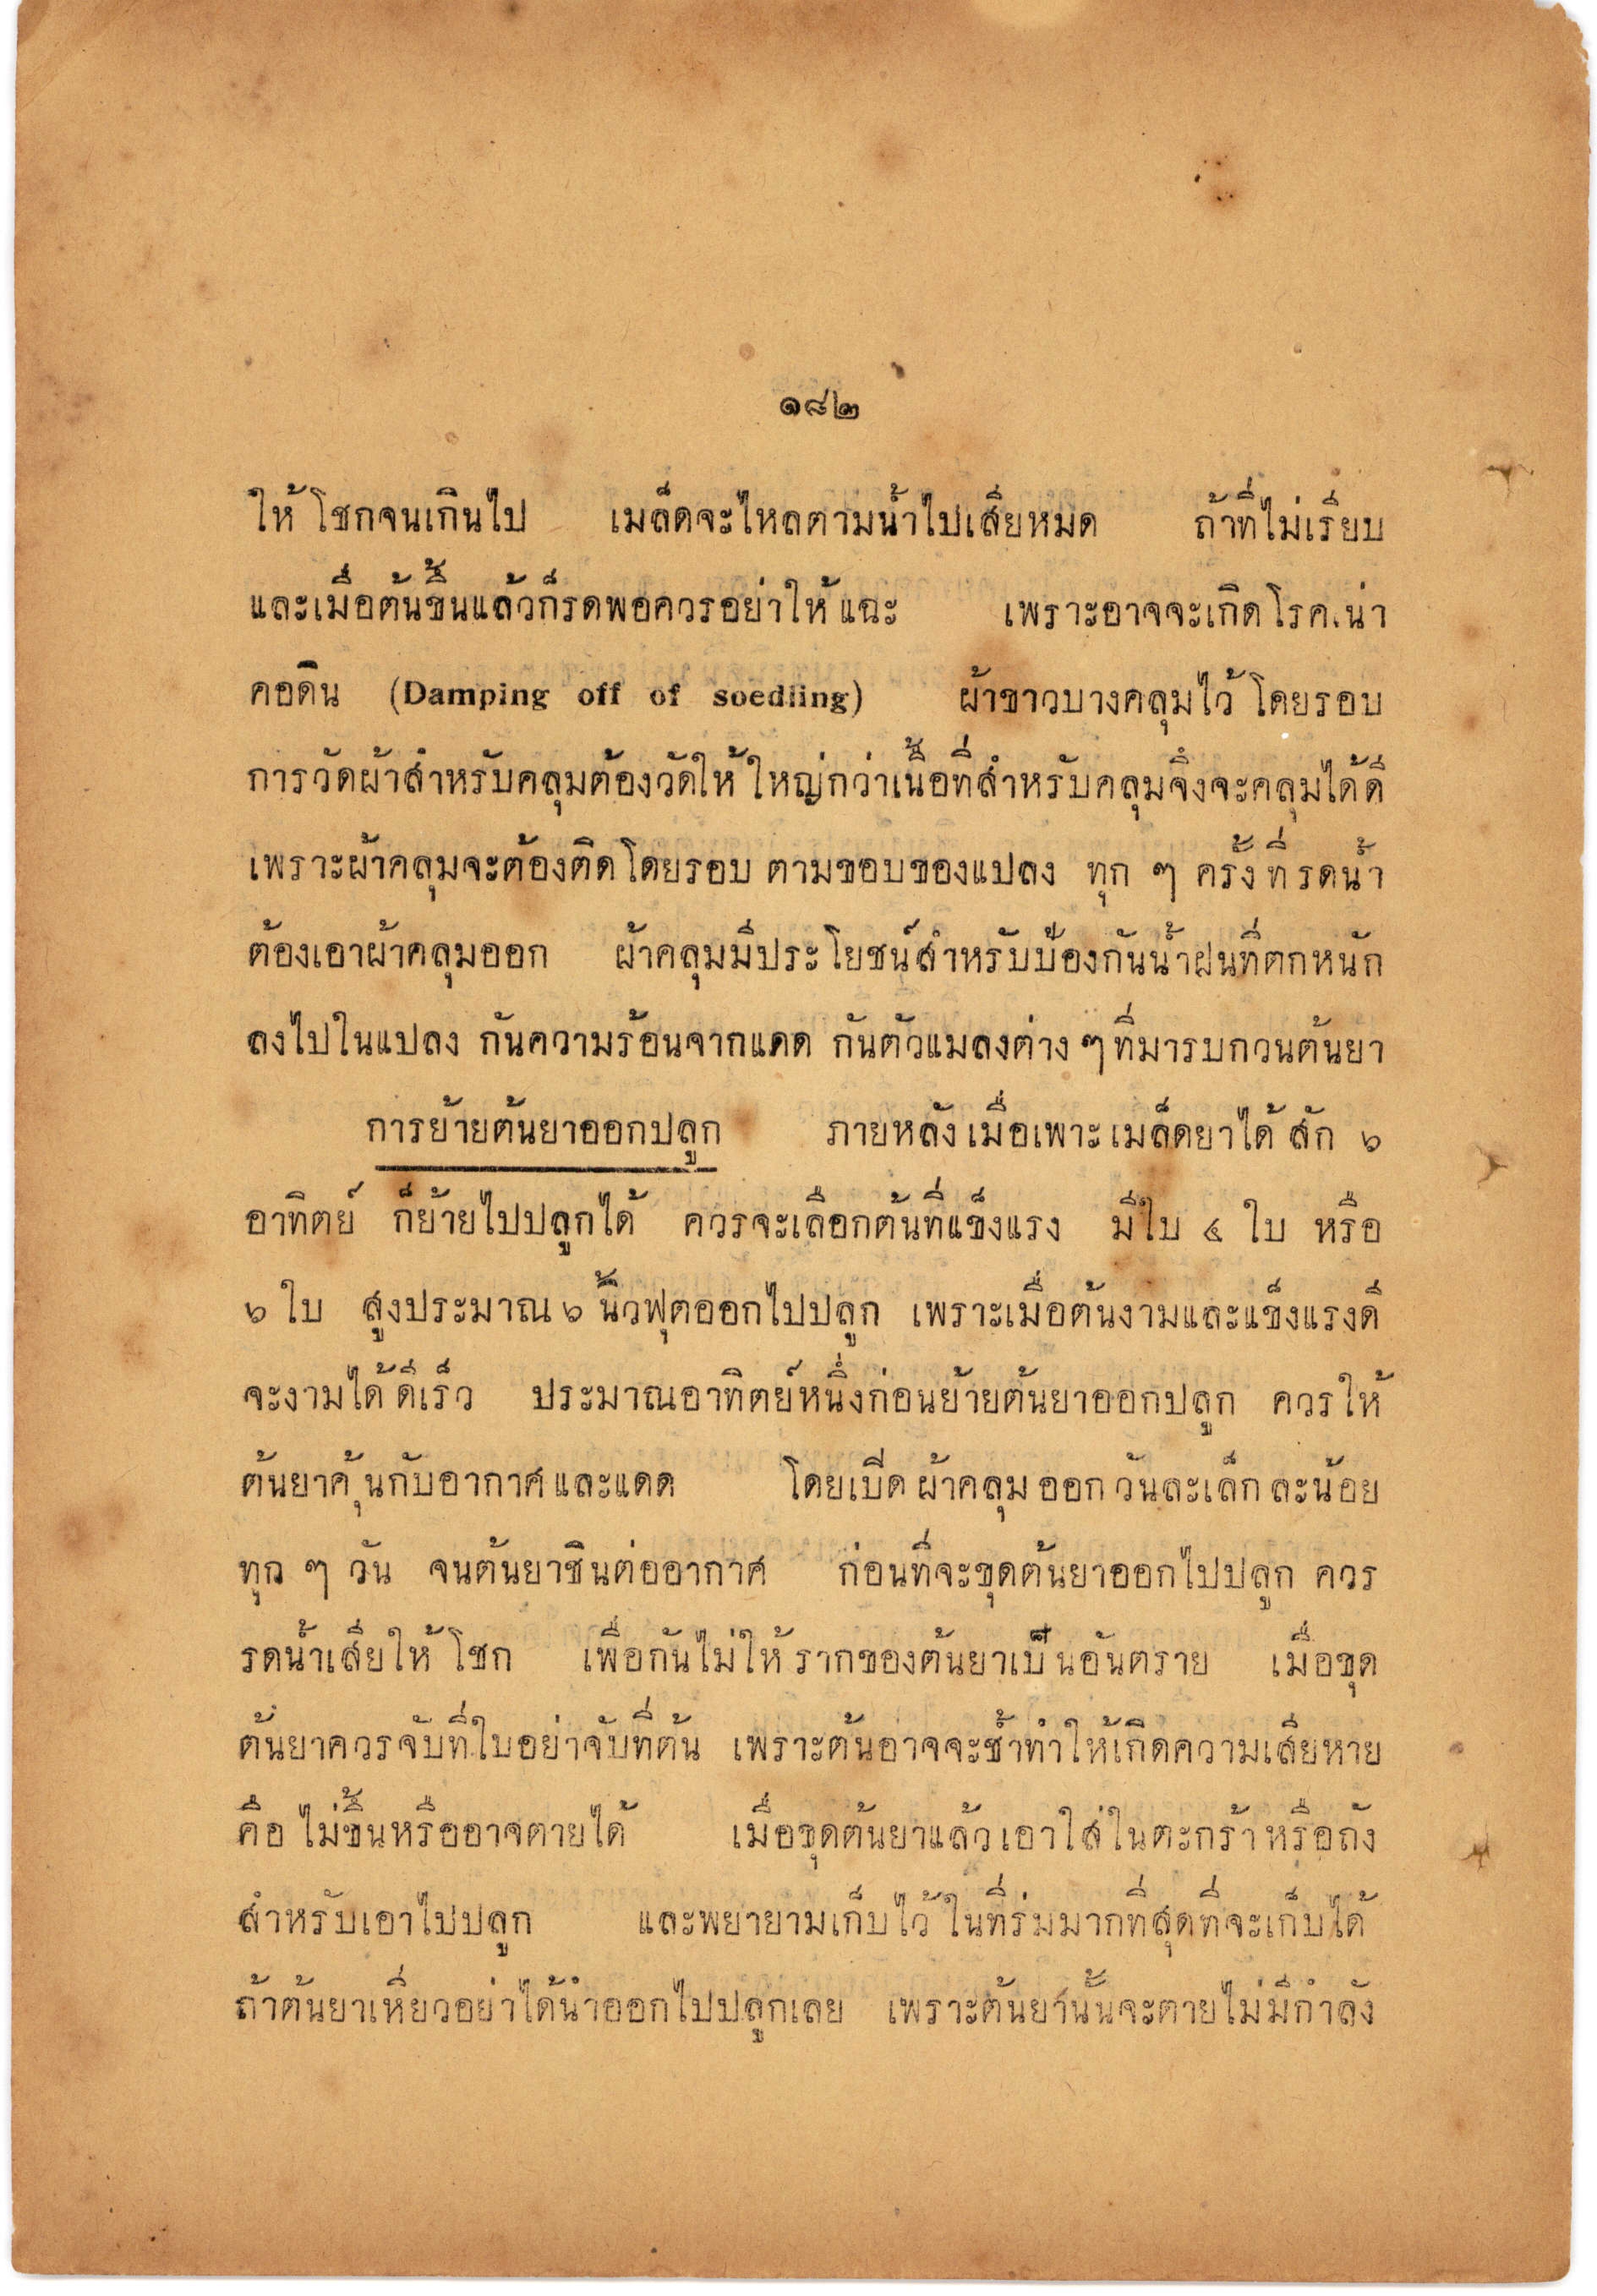 ๑๘๒
ให้โชกจนเกินไป เมล็ดจะไหลตามน้ำไปเสียหมด ถ้าที่ไม่เรียบ
และเมื่อต้นขึ้นแล้วก็รดพอควรอย่าให้แฉะ เพราะอาจจะเกิดโรค.น่า
คอดิน (Damping off of soedling) ผ้าขาวบางคลุมไว้โดยรอบ
การวัดผ้าสำหรับคลุมต้องวัดให้ใหญ่กว่าเนื้อที่สำหรับคลุมจึงจะคลุมได้ดี
เพราะผ้าคลุมจะต้องติดโดยรอบ ตามขอบของแปลง ทุก ๆ ครั้งที่รดน้ำ
ต้องเอาผ้าคลุมออก ผ้าคลุมมีประโยชน์สำหรับป้องกันน้ำฝนที่ตกหนัก
ลงไปในแปลง กันความร้อนจากแดด กันตัวแมลงต่าง ๆ ที่มารบกวนต้นยา
การย้ายต้นยาออกปลูก ภายหลังเมื่อเพาะเมล็ดยาได้สัก ๖
อาทิตย์ ก็ย้ายไปปลูกได้ ควรจะเลือกต้นที่แข็งแรง มีใบ ๔ ใบ หรือ
๖ ใบ สูงประมาณ ๖ นิ้วฟุตออกไปปลูก เพราะเมื่อต้นงามและแข็งแรงดี
จะงามได้ดีเร็ว ประมาณอาทิตย์หนึ่งก่อนย้ายต้นยาออกปลูก ควรให้
ต้นยาคุ้นกับอากาศและแดด โดยเปิดผ้าคลุมออกวันละเล็กละน้อย
ทุก ๆ วัน จนต้นยาชินต่ออากาศ ก่อนที่จะขุดต้นยาออกไปปลูก ควร
รดน้ำเสียให้โชก เพื่อกันไม่ให้รากของต้นยาเป็นอันตราย เมื่อขุด
ต้นยาควรจับที่ใบอย่าจับที่ต้น เพราะต้นอาจจะช้ำทำให้เกิดความเสียหาย
คือ ไม่ขึ้นหรืออาจตายได้ เมื่อขุดต้นยาแล้วเอาใส่ในตะกร้าหรือถัง
สำหรับเอาไปปลูก และพยายามเก็บไว้ในที่ร่มมากที่สุดที่จะเก็บได้
ถ้าต้นยาเหี่ยวอย่าได้นำออกไปปลูกเลย เพราะต้นยานั้นจะตายไม่มีกำลัง